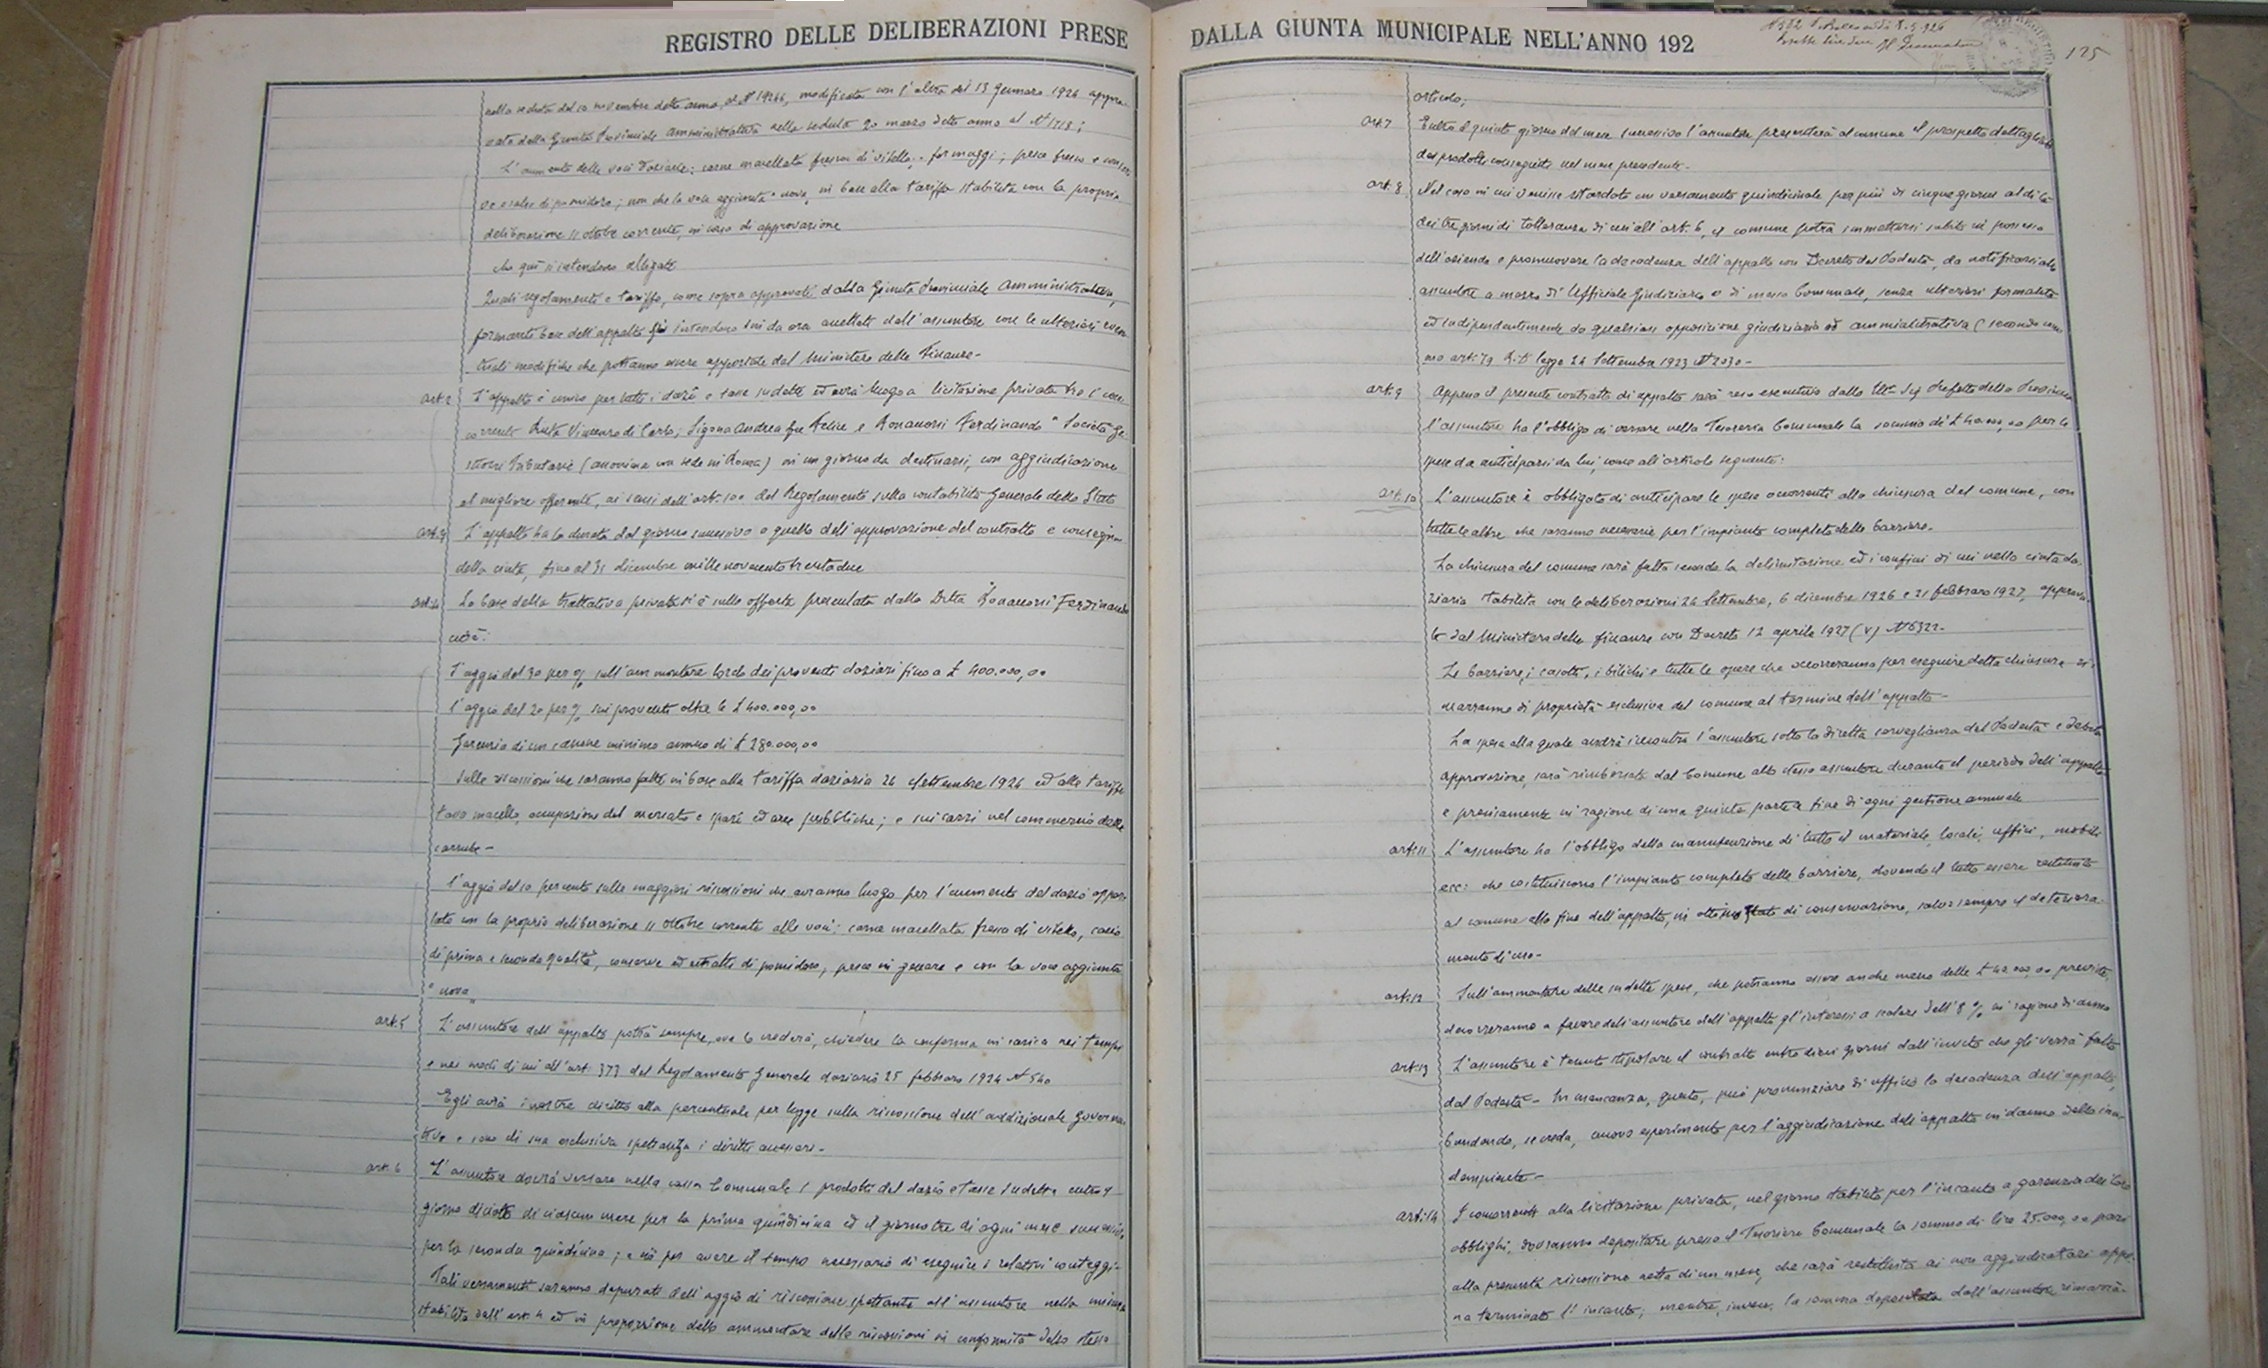 REGISTRO DELLE DELIBERAZIONI PRESE
nella seduta del 10 novembre detto anno, al N° 19266, modificata con l'altra del 13 Gennaro 1926 appro-
vata dalla Giunta Provinciale Amministrativa nella seduta 20 marzo detto anno al N° 1718;
L'aumento delle voci daziarie: carne macellata fresca di vitello, formaggi; pesce fresco e conser-
ve e salse di pomidoro; non che la voce aggiunta "nova" in base alla tariffa stabilita con la propria
deliberazione 11 ottobre corrente, in caso di approvazione
che qui si intendono allegate
Quali regolamenti e tariffe, come sopra approvati dalla Giunta Provinciale Amministrativa,
formante base dell'appalto si intendono sin da ora accettate dall'assuntore con le ulteriori even-
tuali modifiche che potranno essere apportate dal Ministero delle Finanze-
art. 2 L'appalto è unico per tutti i dazi e tasse sudette ed avrà luogo a licitazione privata tra i con-
correnti Vincenzo di Carlo; Andrea fu Felice e Bonaccorsi Ferdinando "Società Ge-
stioni Tributarie (anonima con sede in Roma) in un giorno da destinarsi, con aggiudicazione
al migliore offerente, ai sensi dell'art. 100 del Regolamento sulla contabilità Generale dello Stato
art. 3 L'appalto ha la durata dal giorno successivo a quello dell'approvazione del contratto e consegna
della cinta, fino al 31 dicembre mille novecento trentadue
art. 4 La base della trattativa privata si è sulla offerta presentata dalla Ditta Bonaccorsi Ferdinando
cioè:
l'aggio del 30 per % sull'ammontare lordo dei proventi daziari fino a £ 400.000,00
l'aggio del 20 per % sui proventi oltre le £ 400.000,00
Garenzia di un canone minimo annuo di £ 280.000,00
sulle riscossioni che saranno fatte in base alla tariffa daziaria 26 settembre 1926 ed alle tariffe
tassa macello, occupazione del mercato e spazi ed aree pubbliche; e sui carri nel commercio delle
carrube-
l'aggio del 10 percento sulle maggiori riscossioni che avranno luogo per l'aumento del dazio appor-
tato con la propria deliberazione 11 ottobre corrente alle voci: carne macellata fresca di vitello, cacio
di prima e seconda qualità, conserve ed estratti di pomidoro, pesce in genere e con la voce aggiunta
"nova"
art. 5 L'assuntore dell'appalto potrà sempre, ove lo crederà, chiedere la conferma in carica nei tempi
e nei modi di cui all'art. 373 del Regolamento Generale daziario 25 febbraro 1924 N° 540
Egli avrà inoltre diritto alla percentuale per legge sulla riscossione dell'addizionale governa-
tiva e sono di sua esclusiva spettanza i diritti accessori.
art. 6 L'assuntore dovrà versare nella cassa Comunale i prodotti del dazio e tasse sudette entro il
giorno diciotto di ciascun mese per la prima quindicina ed il giorno tre di ogni mese successivo
per la seconda quindicina; e ciò per avere il tempo necessario di eseguire i relativi conteggi-
Tali versamenti saranno depurati dell'aggio di riscossione spettante all'assuntore nella misura
stabilita dall'art. 4 ed in proporzione dello ammontare delle riscossioni in conformità dello stesso
DALLA GIUNTA MUNICIPALE NELL'ANNO 192
125
articolo;
art. 7 Entro il quinto giorno del mese successivo l'assuntore presenterà al comune il prospetto dettagliato
dei prodotti conseguiti nel mese precedente-
art. 8 Nel caso in cui venisse ritardato un versamento quindicinale per più di cinque giorni al di là
dei tre giorni di tolleranza di cui all'art. 6, il comune potrà immettersi subito in possesso
dell'azienda e promuovere la decadenza dell'appalto con Decreto del Podestà, da notificarsi allo
assuntore a mezzo di Ufficiale Giudiziario o di messo Comunale, senza ulteriori formalità
ed indipendentemente da qualsiasi opposizione giudiziaria od amministrativa (secondo com-
ma art. 79 R. D. legge 24 Settembre 1923 N° 2030-
art. 9 Appena il presente contratto di appalto sarà reso esecutivo dallo Ill.mo Sig. Prefetto della Provincia
l'assuntore ha l'obbligo di versare nella Tesoreria Comunale la somma di £ 40.000,00 per le
spese da anticiparsi da lui, come all'articolo seguente:
art. 10 L'assuntore è obbligato di anticipare le spese occorrenti alla chiusura del comune, con
tutte le altre che saranno necessarie per l'impianto completo delle barriere.
La chiusura del comune sarà fatta secondo la delimitazione ed i confini di cui nella cinta da-
ziaria stabilita con le deliberazioni 26 Settembre, 6 dicembre 1926 e 21 febbraro 1927, approva-
te dal Ministero delle finanze con Decreto 12 aprile 1927 (V) N° 5322-
Le barriere, i casotti, i bilichi e tutte le opere che occorreranno per eseguire detta chiusura ri-
marranno di proprietà esclusiva del comune al termine dell'appalto-
La spesa alla quale andrà incontro l'assuntore sotto la diretta sorveglianza del Podestà e debita
approvazione, sarà rimborsata dal Comune allo stesso assuntore durante il periodo dell'appalto
e precisamente in ragione di una quinta parte a fine di ogni gestione annuale
art. 11 L'assuntore ha l'obbligo della manutenzione di tutto il materiale, locali, uffici, mobili
ecc: che costituiscono l'impianto completo delle barriere, dovendo il tutto essere restituito
al comune alla fine dell'appalto, in ottimo stato di conservazione, salvo sempre il deteriora-
mento d'uso-
art. 12 Sull'ammontare delle sudette spese, che potranno essere anche meno delle £ 40.000,00 previste,
decorreranno a favore dell'assuntore dell'appalto gl'interessi a scalare dell'8% in ragione di anno
art. 13 L'assuntore è tenuto stipolare il contratto entro dieci giorni dall'invito che gli verrà fatto
dal Podestà- In mancanza, questo, può pronunziare di ufficio la decadenza dell'appalto,
bandendo, se creda, nuovo esperimento per l'aggiudicazione dell'appalto in danno dello ina-
dempiente-
art. 14 I concorrenti alla licitazione privata, nel giorno stabilito per l'incanto a garenzia dei loro
obblighi, dovranno depositare presso il Tesoriere Comunale la somma di lire 25.000,00 pari
alla presunta riscossione netta di un mese, che sarà restituita ai non aggiudicatari appe-
na terminato l'incanto; mentre, invece, la somma depositata dall'assuntore rimarrà